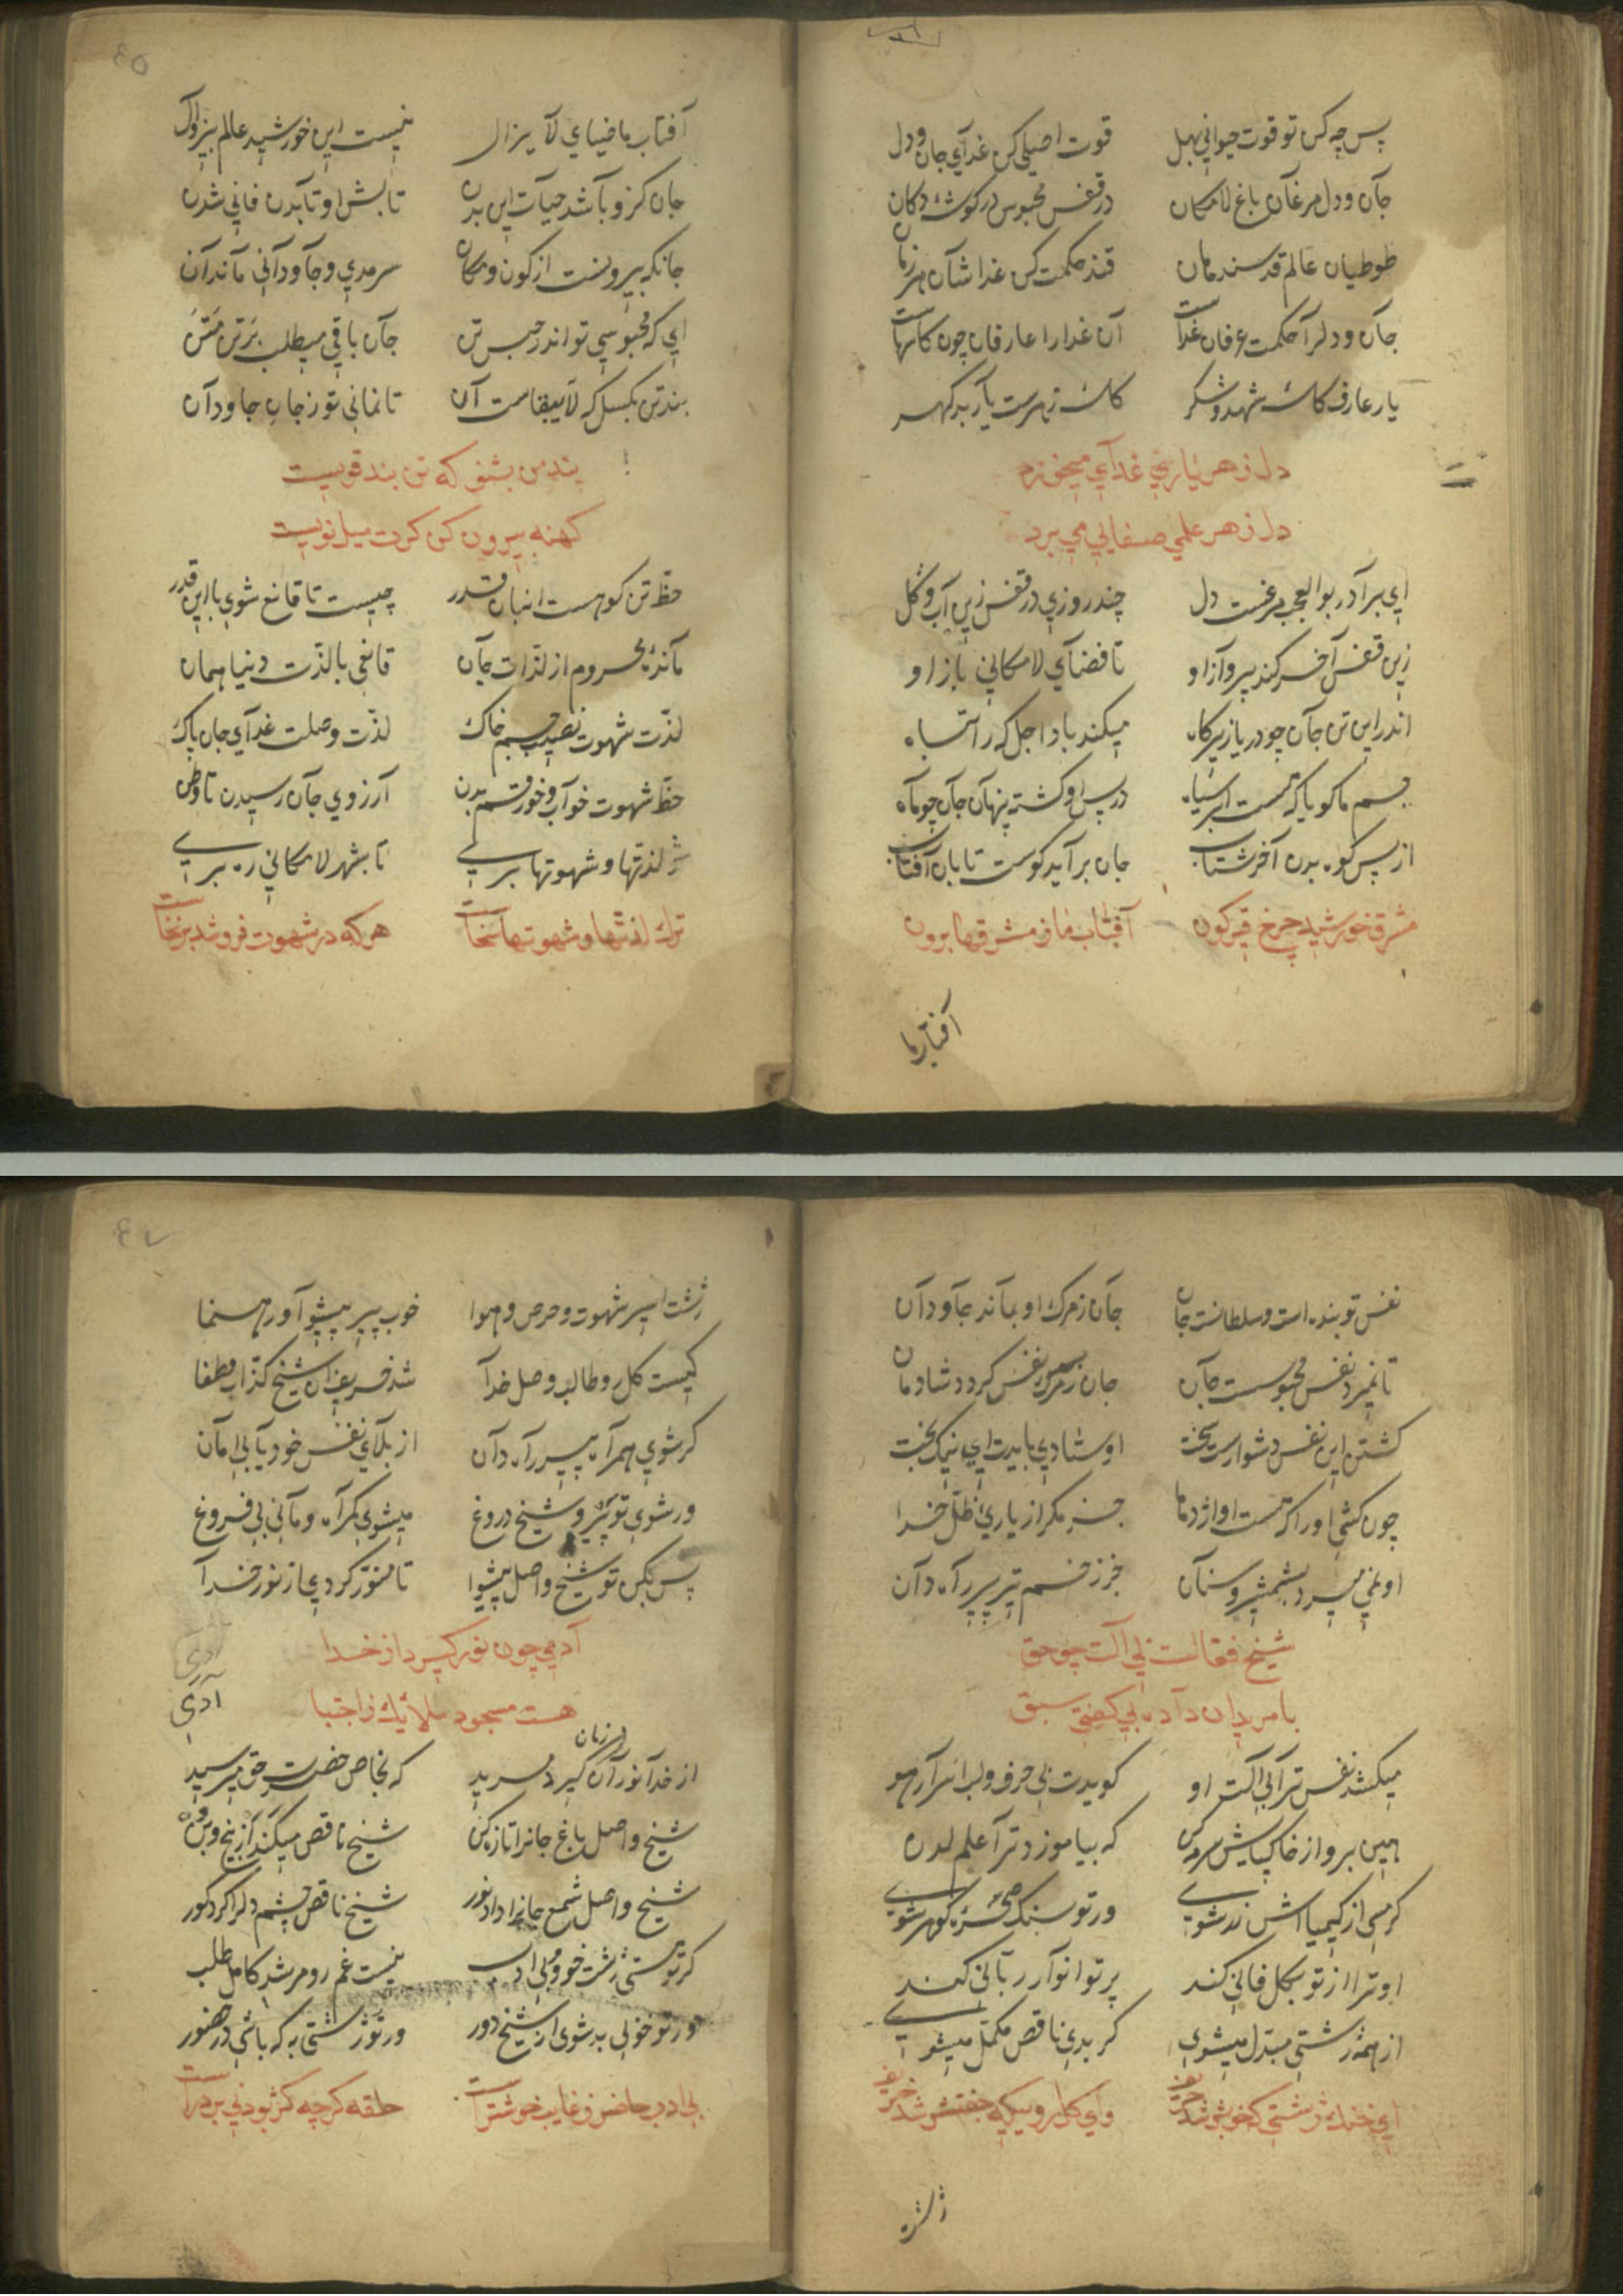 پس چه کن تو قوت حیوانی بهل قوت اصلی کن غدآی جان و دل
جآن و دل مرغان باغ لامکان در قفس محبوس در کوشۀ دکان
طوطیان عالم قدسند مان قند حکمت کن غدا شآن هر زمان
جآن و دلرآ حکمت عرفان غداست آن غدارا عارفان چون کاسهاست
یار عارف کاسۀ شهد و شکر کاسۀ زهرست یآر بد کهر
دل ز هر یاری غدآی میخورد
دل ز هر علمی صفایی می برد
ای برآدر بوالعجب مرغست دل چند روزی در قفس زین آب و کل
زین قفس آخر کند پروآز او تا فضآی لامکانی باز او
اندر این تن جآن چو دریا زیر کاه میکند باد اجل که را تباه
جسم ما کویا که هست ابر سیاه در پس او کشته پنهآن جآن چو مآه
از پس کوه بدن آخر شتاب جان برآید کوست تابان آفتاب
مشرق خورشید چرخ قیرکون آفتاب ما ز مشرقها برون
آفتاب ما
آفتاب ما ضیای لآ یزال نیست این خورشید عالم بیزوال
جان کزو باشد حیآت این بدن تابش او تا بدن فانی شدن
جانکه بیرونست از کون و مکان سرمدی و جآودآنی مآند آن
ای که محبوسی تو اندر حبس تن جآن باقی میطلب بر تن متن
بند تن بکسل که لآ یبقاست آن تا نمانی تو ز جان جاودآن
پند من بشنو که تن بند قویست
کهنه بیرون کن کرت میل نویست
حظ تن کو هست انبان قدر چیست تا قانع شوی با این قدر
مآندۀ محروم از لذّات جآن قانعی با لذّت دنیا همان
لذّت شهوت نصیب جسم خاک لذّت وصلت غدآی جان پاک
حظ شهوت خوآب و خور قسم بدن آرزوی جآن رسیدن تا وطن
ز لذتها و شهوتها بری تا بشهر لامکانی ره بری
ترک لذتها و شهوتها سخاست هر که در شهوت فروشد برنخاست
نفس تو بنده است و سلطانست جان جآن ز مرک او بمآند جآودآن
تا نمیرد نفس محبوسست جآن جان ز مرک نفس کردد شادمان
کشتن این نفس دشوارست سخت اوستادی بایدت ای نیکبخت
چون کشی او را که هست او اژدها جز مکر از یاری ظلّ خدا
او نمی میرد بشمشیر و سنآن جز ز زخم تیر پیر رآه دآن
شیخ فعّالست بی آلت چو حق
با مریدان دآده بی کفتی سبق
میکشد نفس ترآ بی آلت او کویدت بی حرف و لب اسرآر هو
هین برو از خاک پایش سرمه کن که بیاموزد ترآ علم لدن
کر مسی از کیمیا اش زر شوی ور تو سنک صخرۀ کوهر شوی
او ترا از تو بکل فانی کند پرتو انوآر ربّانی کند
از همه زشتی مبدّل میشوی کر بدی ناقص مکمّل میشوی
ای خنک زشتی که خوبش شد حریف وای کلرویی که جفتش شد خریف
زشت
زشت اسیر شهوت و حرص و هوا خوب پیر پیشوآ و رهنما
کیست کل رو طالب وصل خدآ شد خریف آن شیخ کذّاب دغا
کر شوی همرآه پیر رآه دآن از بلآی نفس خود یآبی امآن
ور شوی تو پیرو شیخ دروغ میشوی کمرآه و مآنی بی فروغ
پس بکن تو شیخ واصل پیشوا تا منوّر کردی از نور خدآ
آدمی چون نور کیرد از خدا
هست مسجود ملائک ز اجتبا
آدمی
از خدآ نور آن زمان کیرد مرید که بخاص حضرت حق میرسید
شیخ واصل باغ جانرا تازه کن شیخ ناقص میکَند از بیخ و بن
شیخ واصل شمع جانرا داد نور شیخ ناقص چشم دلرا کرد کور
کر تو هستی زشت خو و بی ادب نیست غم رو مرشد کامل طلب
ور تو خوبی به شوی از شیخ دور ور تو زشتی به که باشی در حضور
بی ادب حاضر ز غایب خوشترست حلقه کرچه کژ بود نی بر درست